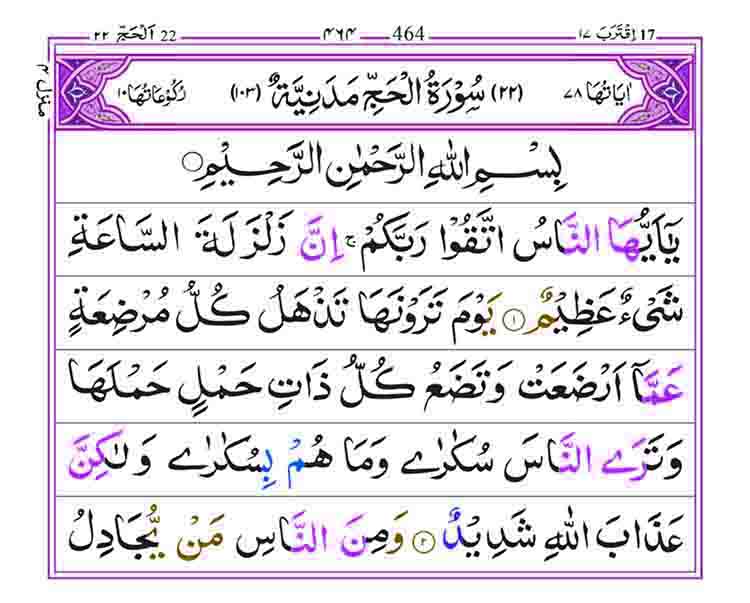 17 اِقْتَرَبَ ١٧ 464 ٤٦٤ 22 اَلْحَجّ ٢٢
منزل ٤
اٰيَاتُهَا ٧٨ (٢٢) سُوْرَةُ الْحَجِّ مَدَنِيَّةٌ (١٠٣) رُكُوْعَاتُهَا ١٠
بِسْمِ اللهِ الرَّحْمٰنِ الرَّحِيْمِ
يٰۤاَيُّهَا النَّاسُ اتَّقُوْا رَبَّكُمْ ۚ اِنَّ زَلْزَلَةَ السَّاعَةِ
شَيْءٌ عَظِيْمٌ ۝١ يَوْمَ تَرَوْنَهَا تَذْهَلُ كُلُّ مُرْضِعَةٍ
عَمَّاۤ اَرْضَعَتْ وَتَضَعُ كُلُّ ذَاتِ حَمْلٍ حَمْلَهَا
وَتَرَى النَّاسَ سُكٰرٰى وَمَا هُمْ بِسُكٰرٰى وَلٰكِنَّ
عَذَابَ اللهِ شَدِيْدٌ ۝٢ وَمِنَ النَّاسِ مَنْ يُّجَادِلُ